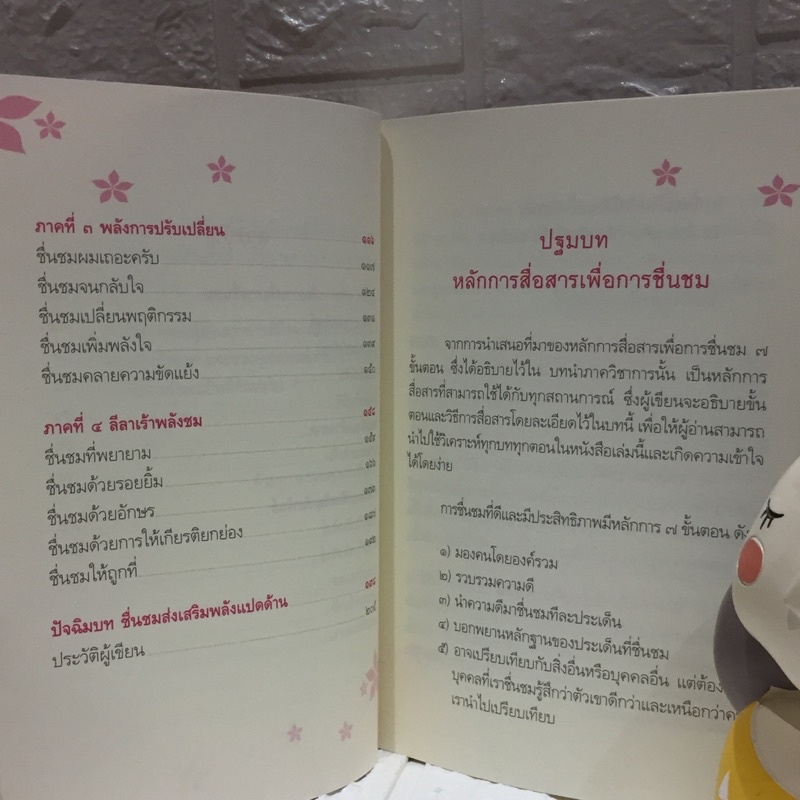 ภาคที่ ๓ พลังการปรับเปลี่ยน
ชื่นชมผมเถอะครับ
ชื่นชมจนกลับใจ
ชื่นชมเปลี่ยนพฤติกรรม
ชื่นชมเพิ่มพลังใจ
ชื่นชมคลายความขัดแย้ง
ภาคที่ ๔ ลีลาเร้าพลังชม
ชื่นชมที่พยายาม
ชื่นชมด้วยรอยยิ้ม
ชื่นชมด้วยอักษร
ชื่นชมด้วยการให้เกียรติยกย่อง
ชื่นชมให้ถูกที่
ปัจฉิมบท ชื่นชมส่งเสริมพลังแปดด้าน
ประวัติผู้เขียน
ปฐมบท
หลักการสื่อสารเพื่อการชื่นชม
จากการนำเสนอที่มาของหลักการสื่อสารเพื่อการชื่นชม ๗
ขั้นตอน ซึ่งได้อธิบายไว้ใน บทนำภาควิชาการนั้น เป็นหลักการ
สื่อสารที่สามารถใช้ได้กับทุกสถานการณ์ ซึ่งผู้เขียนจะอธิบายขั้น
ตอนและวิธีการสื่อสารโดยละเอียดไว้ในบทนี้ เพื่อให้ผู้อ่านสามารถ
นำไปใช้วิเคราะห์ทุกบททุกตอนในหนังสือเล่มนี้และเกิดความเข้าใจ
ได้โดยง่าย
การชื่นชมที่ดีและมีประสิทธิภาพมีหลักการ ๗ ขั้นตอน
๑) มองคนโดยองค์รวม
๒) รวบรวมความดี
๓) นำความดีมาชื่นชมทีละประเด็น
๔) บอกพยานหลักฐานของประเด็นที่ชื่นชม
๕) อาจเปรียบเทียบกับสิ่งอื่นหรือบุคคลอื่น แต่ต้อง
บุคคลที่เราชื่นชมรู้สึกว่าตัวเขาดีกว่าและเหนือกว่า
เรานำไปเปรียบเทียบ